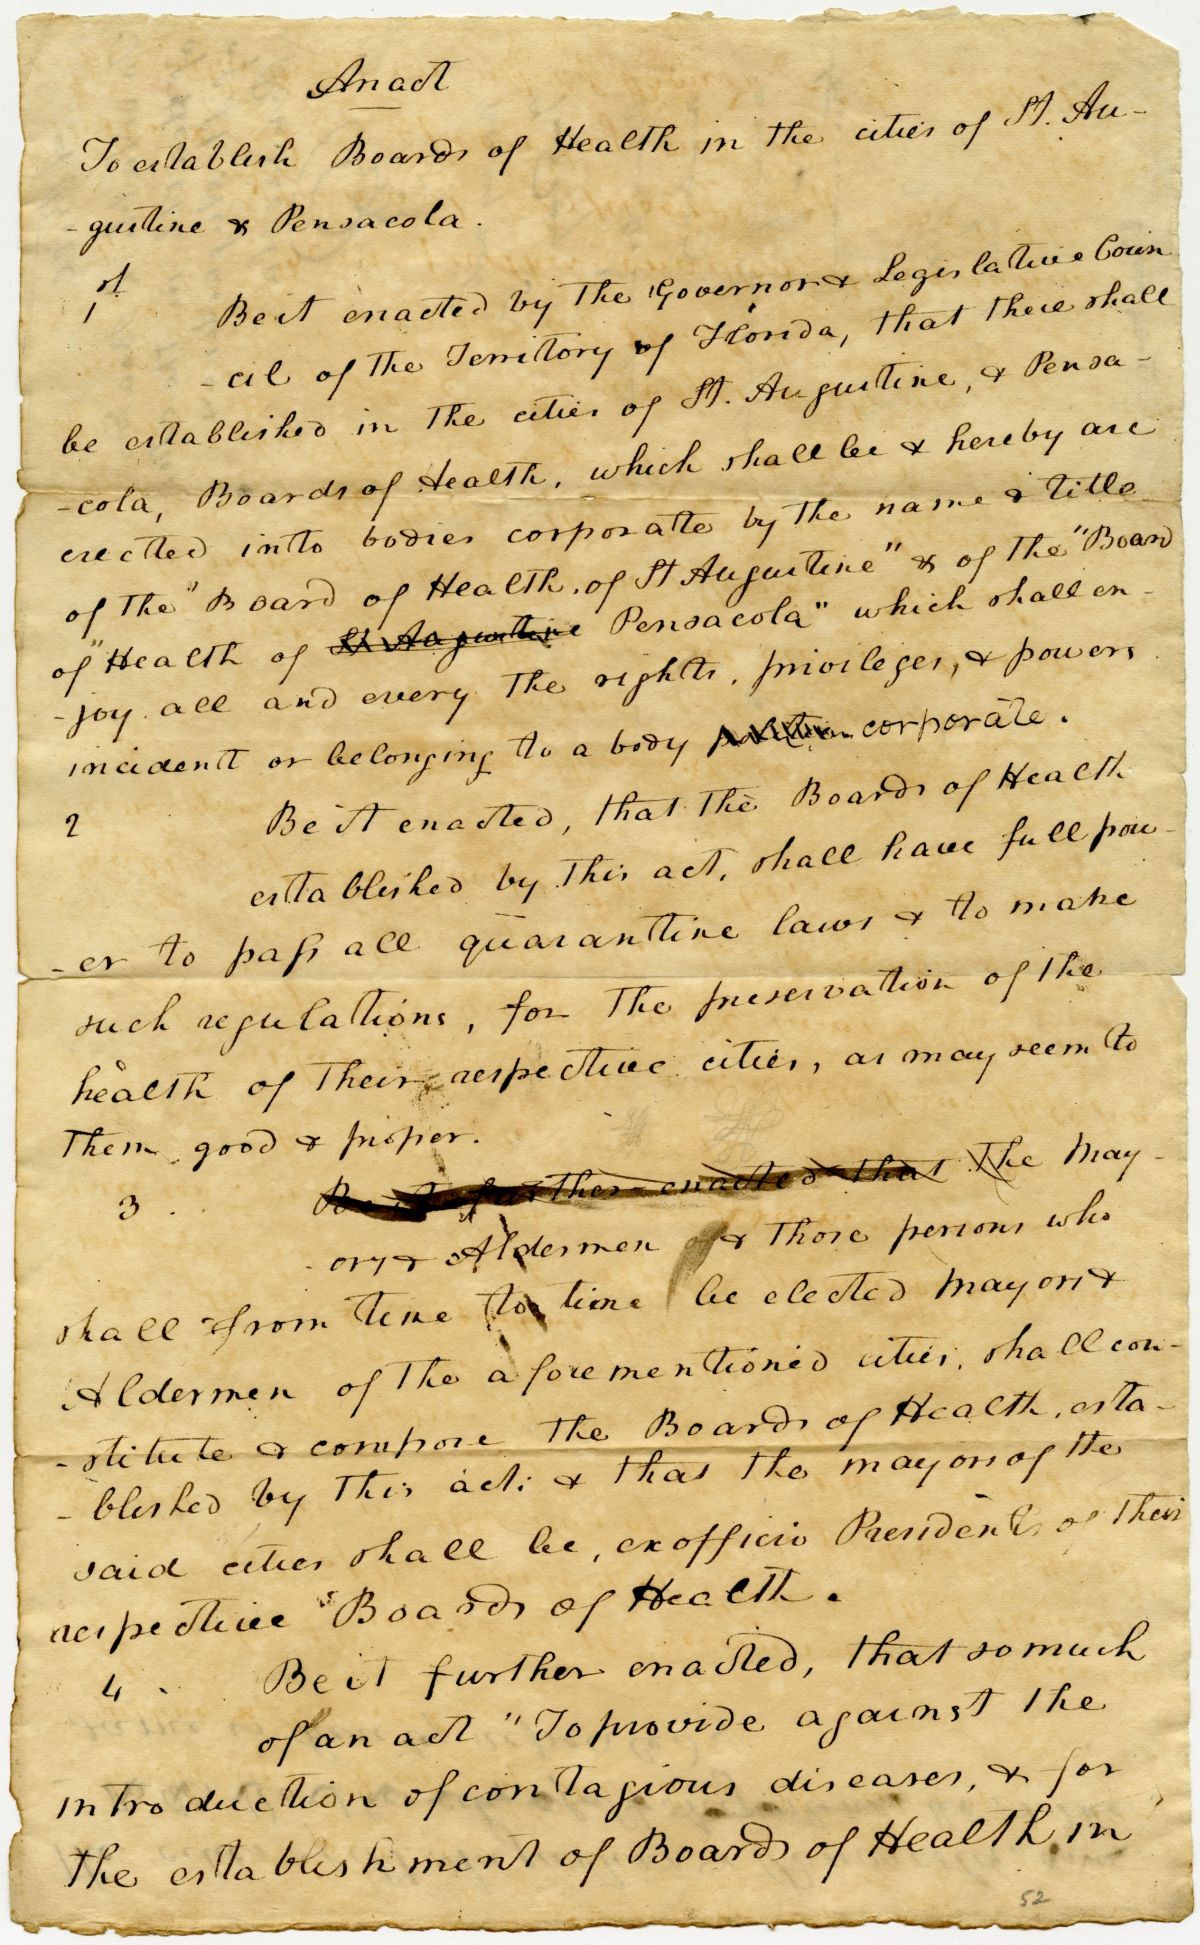 An act
To establish Boards of Health in the cities of St. Au-
-gustine & Pensacola.
1st Be it enacted by the Governor & Legislative Coun
-cil of the Territory of Florida, that there shall
be established in the cities of St. Augustine, & Pensa-
-cola, Boards of Health, which shall be & hereby are
erected into bodies corporate by the name & title
of the "Board of Health of St Augustine" & of the "Board
of" Health of St Augustine Pensacola" which shall en-
-joy all and every the rights, privileges, & powers
incident or belonging to a body corporate.
2 Be it enacted, that the Boards of Health
established by this act, shall have full pow-
-er to pass all quarantine laws & to make
such regulations, for the preservation of the
health of their respective cities, as may seem to
them good & proper.
3. Be it further enacted that the May-
-ors & Aldermen & those persons who
shall from time to time be elected Mayors &
Aldermen of the aforementioned cities, shall con-
-stitute & compose the Boards of Health, esta-
-blished by this act; & that the mayors of the
said cities shall be, ex officio Presidents of their
respective Boards of Health.
4. Be it further enacted, that so much
of an act "To provide against the
introduction of contagious diseases, & for
the establishment of Boards of Health in
52